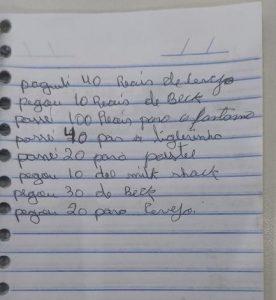 paguei 40 Reais de cerveja
pegou 10 Reais de Beck
passei 100 Reais para o fantasma
passei 40 par o
passei 20 para pastel
pegou 10 deo milk shack
pegou 30 de Beck
pegou 20 para cerveja.